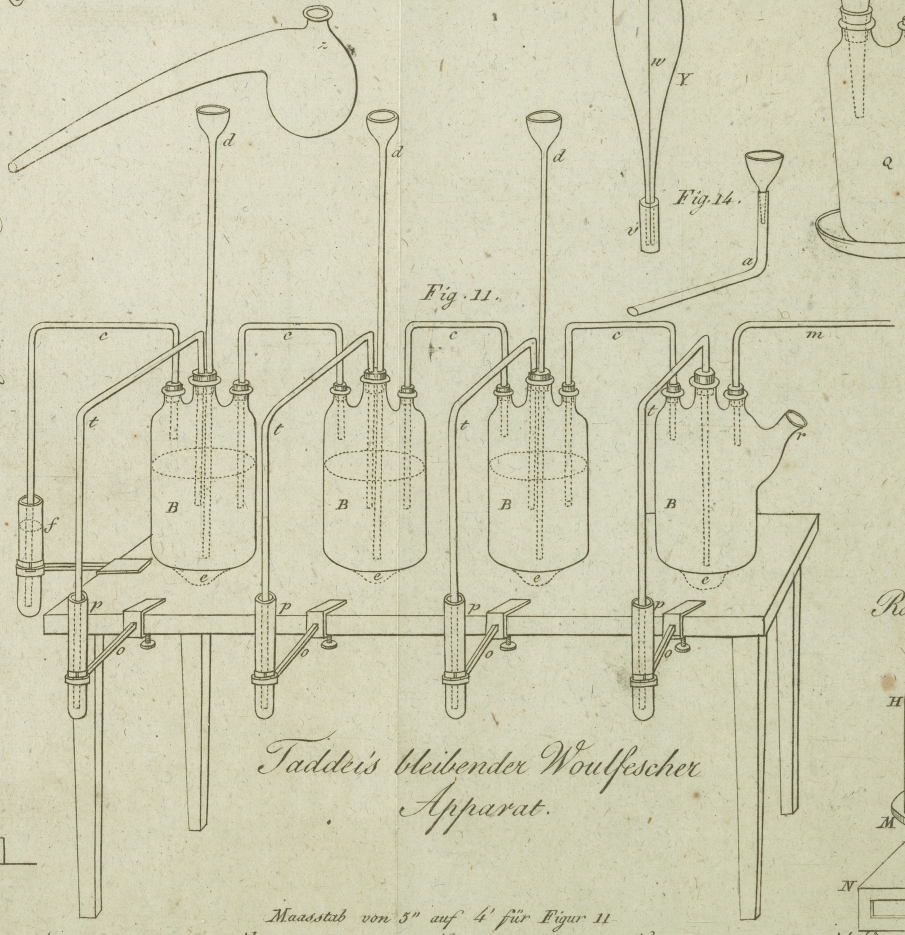 z
w
Y
d
d
d
Q
Fig. 14.
v
a
Fig. 11.
c
c
c
c
m
t
t
t
t
r
B
B
B
B
f
e
e
e
e
p
p
p
p
o
o
o
o
H
M
N
Taddei's bleibender Woulfescher
Apparat.
Maasstab von 5" auf 4' für Figur 11